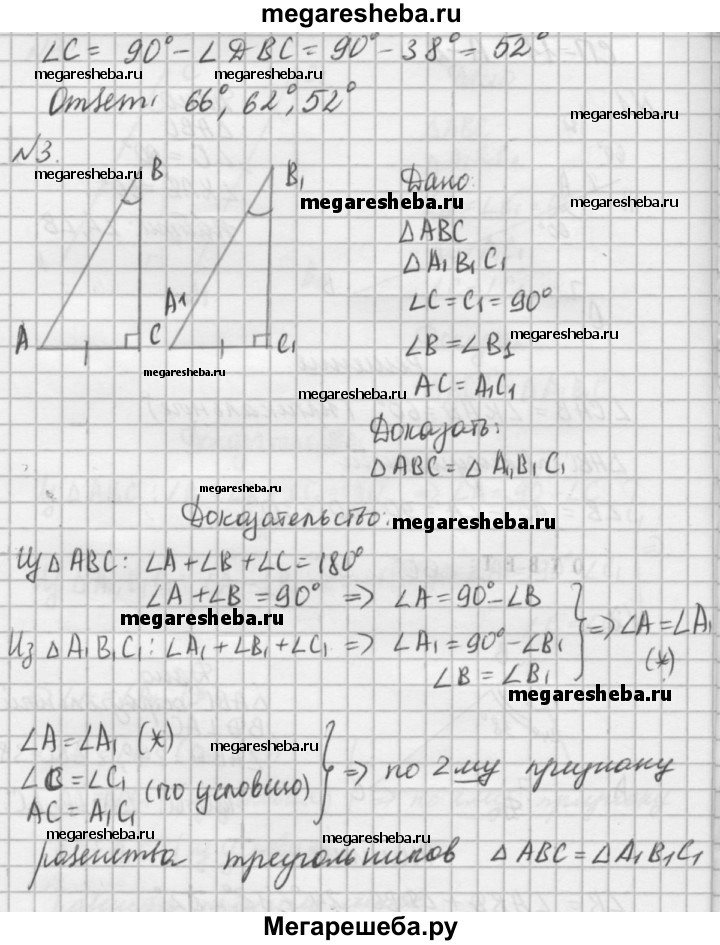 megaresheba.ru
∠C = 90° - ∠ABC = 90° - 38° = 52°
megaresheba.ru megaresheba.ru
Ответ: 66°, 62°, 52°
megaresheba.ru
№3.
megaresheba.ru B B₁ Дано:
megaresheba.ru megaresheba.ru
△ABC
△A₁B₁C₁
∠C = C₁ = 90°
A1
A C C₁ megaresheba.ru
∠B = ∠B₁
megaresheba.ru
AC = A₁C₁
megaresheba.ru
Доказать:
△ABC = △A₁B₁C₁
megaresheba.ru
Доказательство: megaresheba.ru
Из △ABC: ∠A + ∠B + ∠C = 180°
∠A + ∠B = 90° => ∠A = 90° - ∠B
megaresheba.ru => ∠A = ∠A₁
Из △A₁B₁C₁: ∠A₁ + ∠B₁ + ∠C₁ => ∠A₁ = 90° - ∠B₁
(*)
∠B = ∠B₁
megaresheba.ru
∠A = ∠A₁ (*) megaresheba.ru
∠C = ∠C₁ (по условию) => по 2му признаку
AC = A₁C₁
megaresheba.ru megaresheba.ru
равенства треугольников △ABC = △A₁B₁C₁
megaresheba.ru megaresheba.ru
Мегарешеба.ру